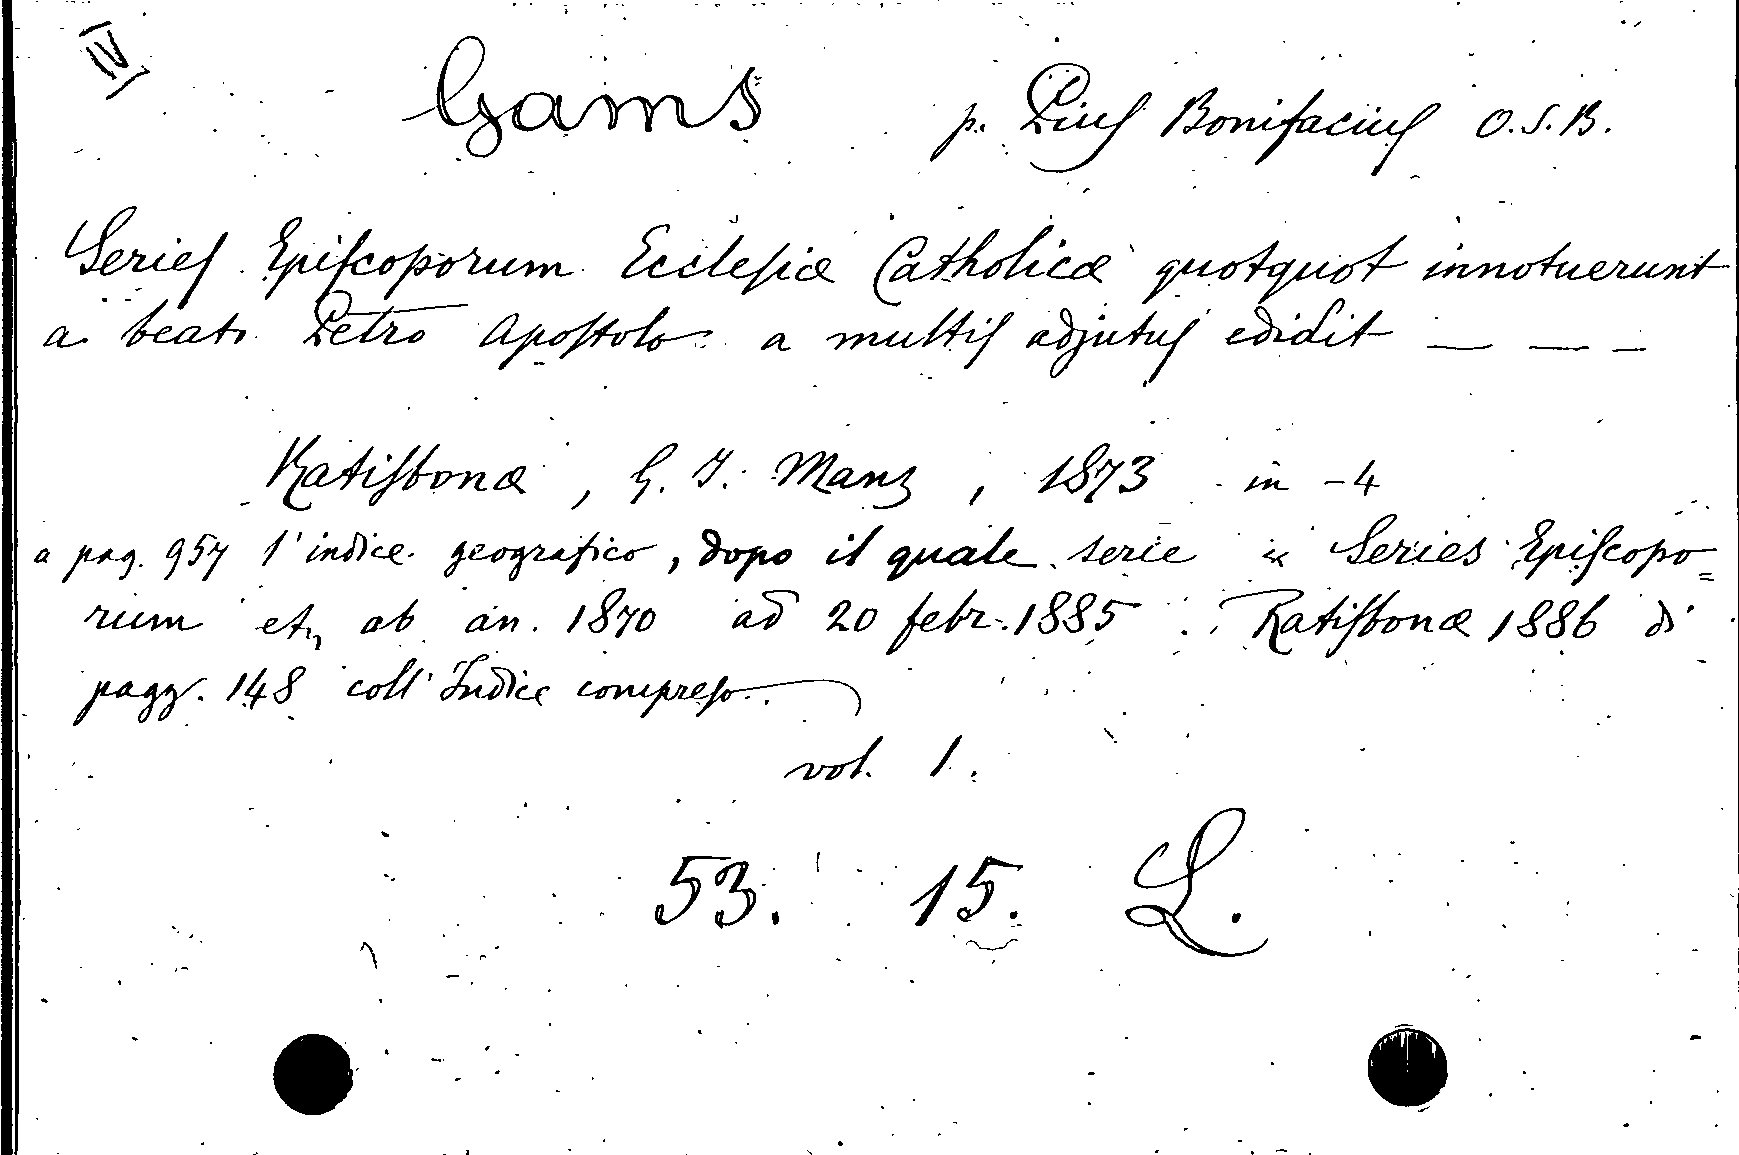 IV
Gams p. Pius Bonifacius O.S.B.
Series Episcoporum Ecclesiæ Catholicæ quotquot innotuerunt
a beato Petro Apostolo a multis adjutus edidit — — —
Ratisbonæ, G. J. Manz, 1873 in-4
a pag. 957 l'indice geografico, dopo il quale serie « Series Episcopo=
rum etc ab an. 1870 ad 20 febr. 1885 Ratisbonæ 1886 di
pagg. 148 coll'Indice compreso.
vol. 1.
53. 15. L.